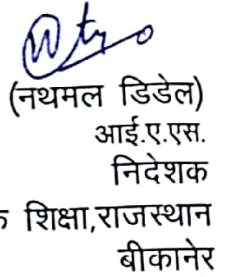 (नथमल डिडेल)
आई.ए.एस.
निदेशक
शिक्षा,राजस्थान
बीकानेर